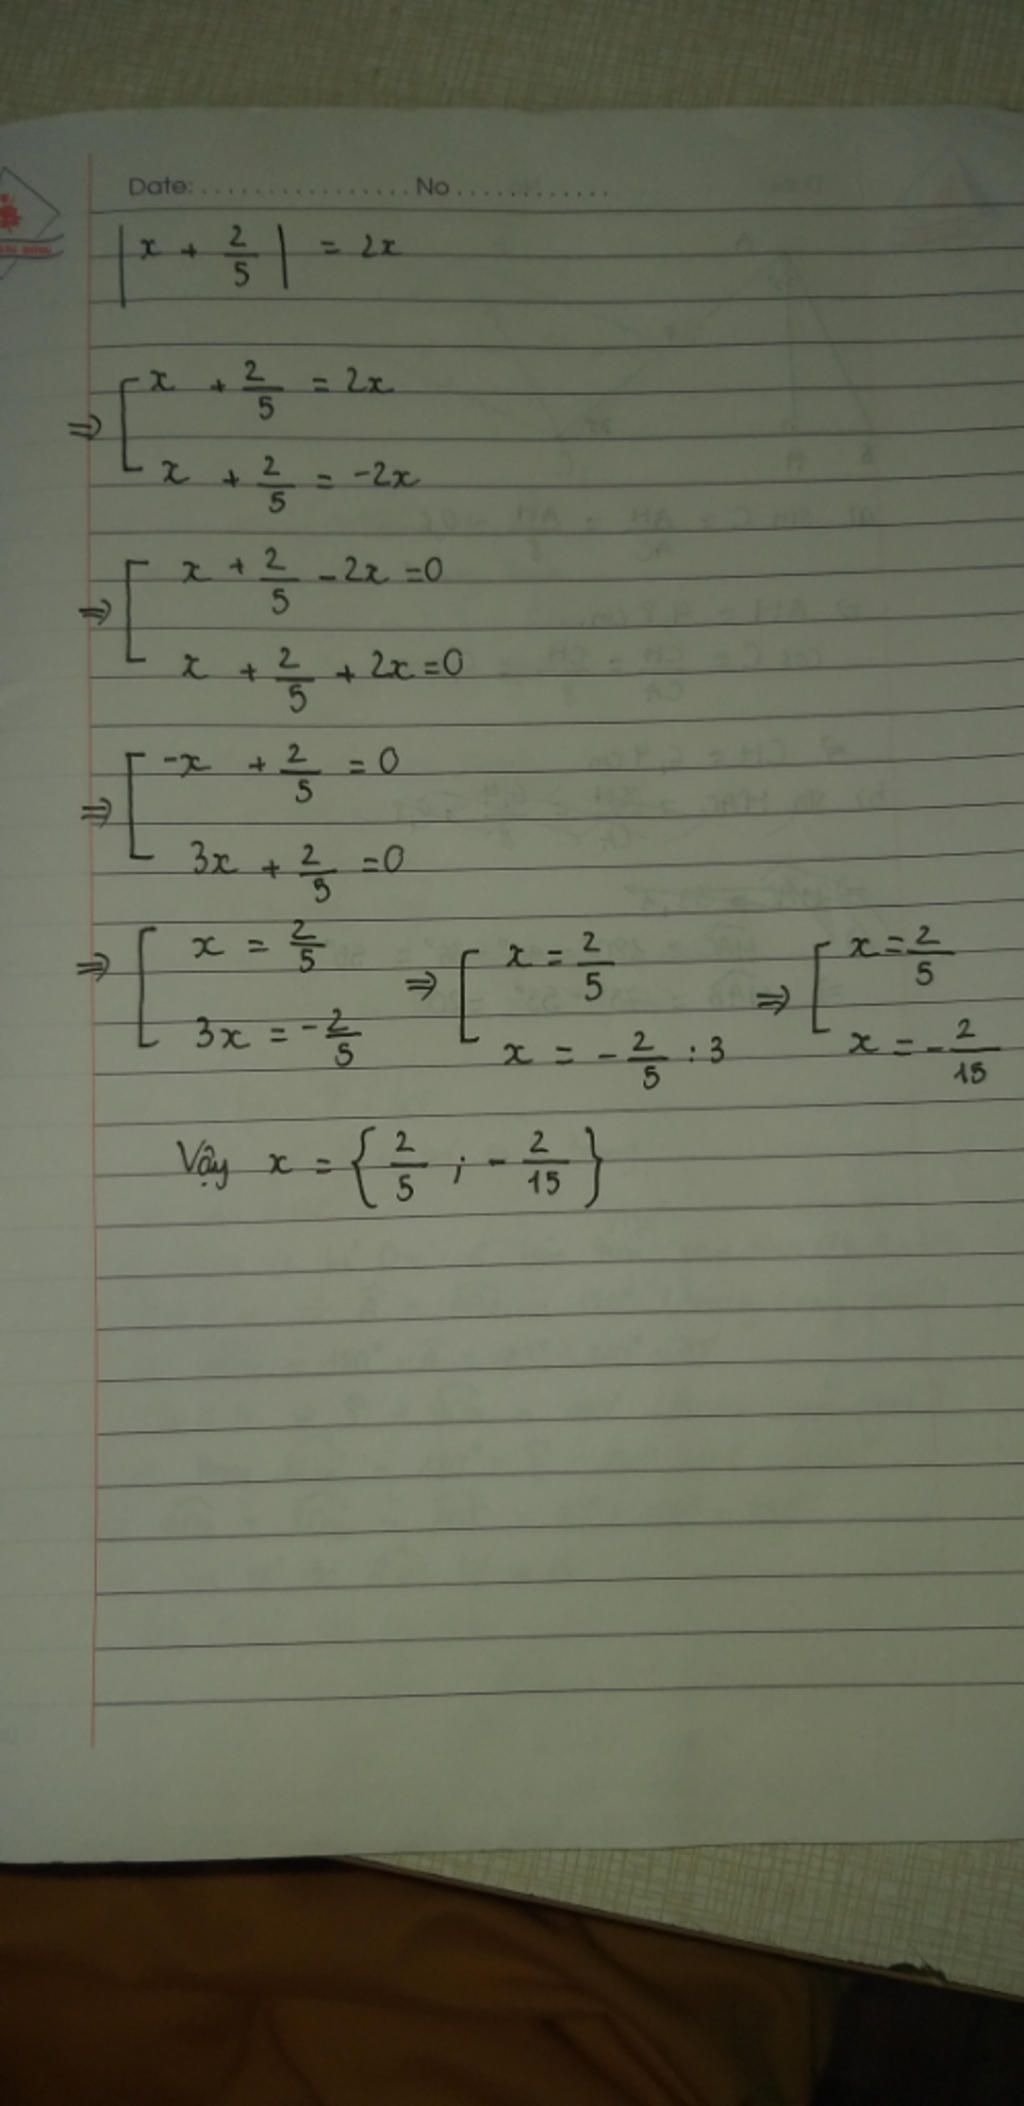 Date: ................ No ............
|x + 2/5| = 2x
⇒ [ x + 2/5 = 2x
x + 2/5 = -2x
⇒ [ x + 2/5 - 2x = 0
x + 2/5 + 2x = 0
⇒ [ -x + 2/5 = 0
3x + 2/5 = 0
⇒ [ x = 2/5 ⇒ [ x = 2/5 ⇒ [ x = 2/5
3x = -2/5 x = -2/5 : 3 x = -2/15
Vậy x = {2/5 ; -2/15}